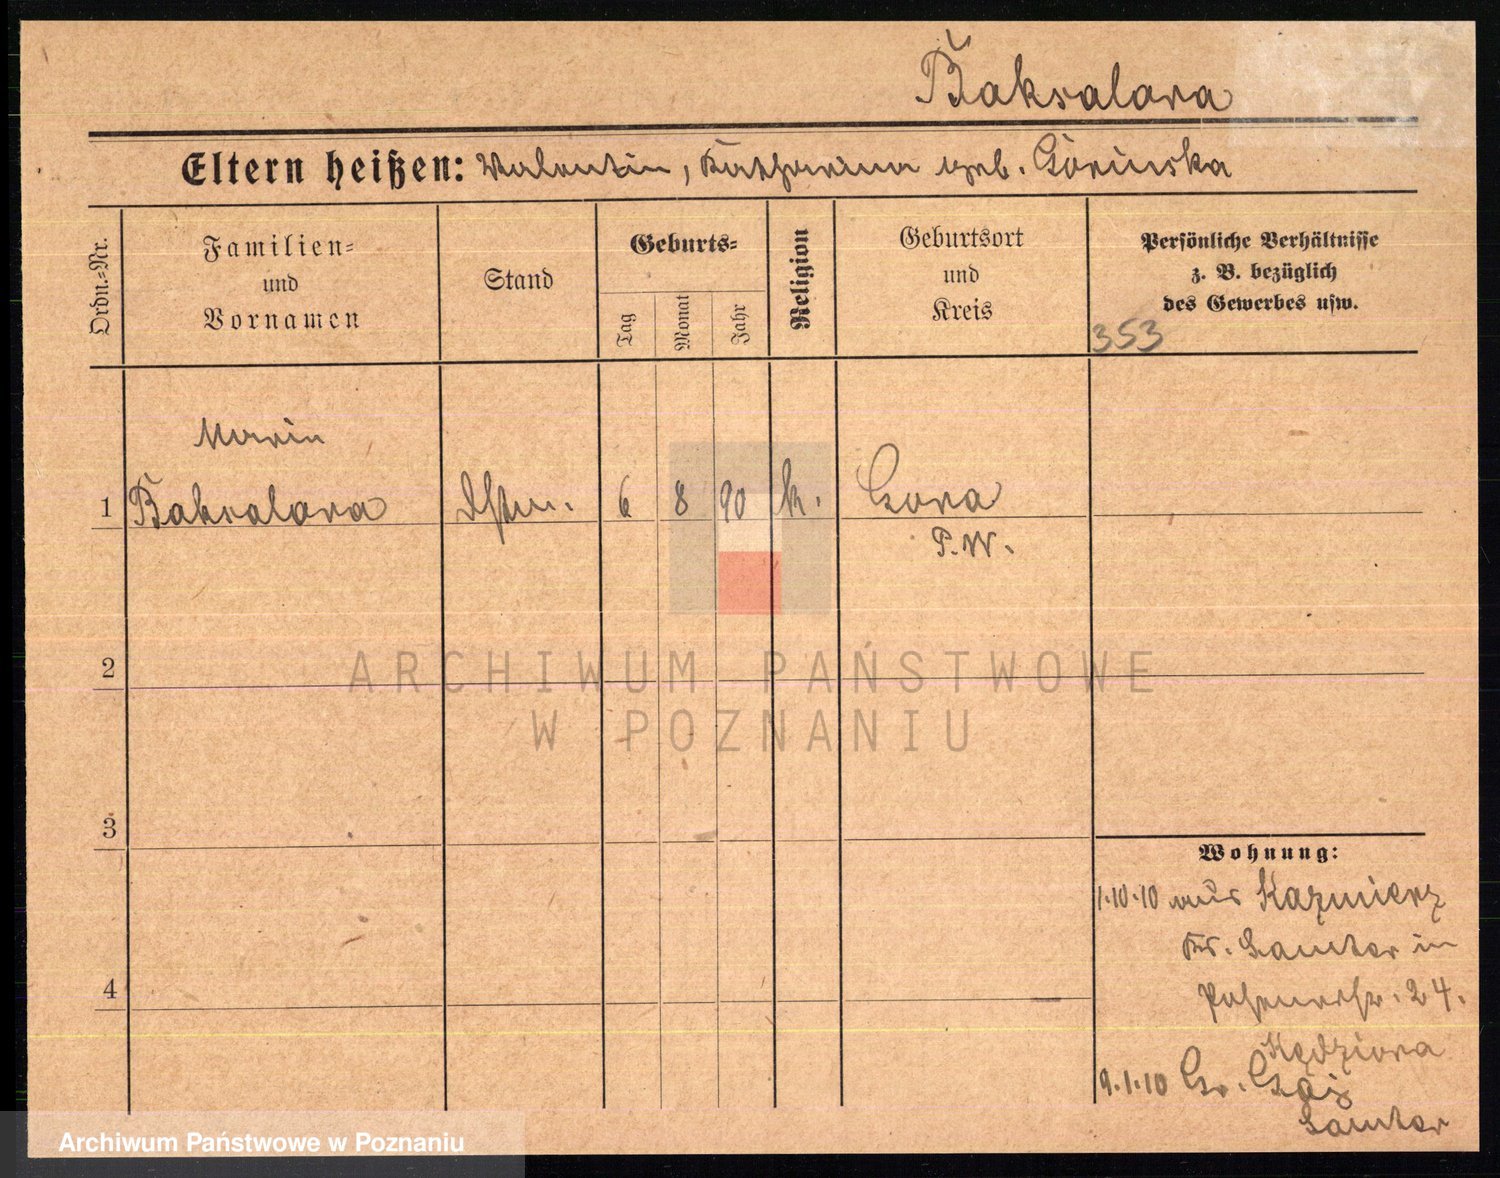 Baksalara
Eltern heißen: Valentin, Katharina geb. Górniska
Ordn.-Nr.
Familien-
und
Vornamen
Stand
Geburts-
Tag
Monat
Jahr
Religion
Geburtsort
und
Kreis
Persönliche Verhältnisse
z. B. bezüglich
des Gewerbes usw.
353
Marie
1 Baksalara 6 8 90 k. Gora
P. W.
2
3
4
Wohnung:
1.10.10 aus Kazmierz
Kr. Samter in
Posenerstr. 24.
Kędziora
9.1.10 Gr. Gaj
Samter
ARCHIWUM PAŃSTWOWE
W POZNANIU
Archiwum Państwowe w Poznaniu